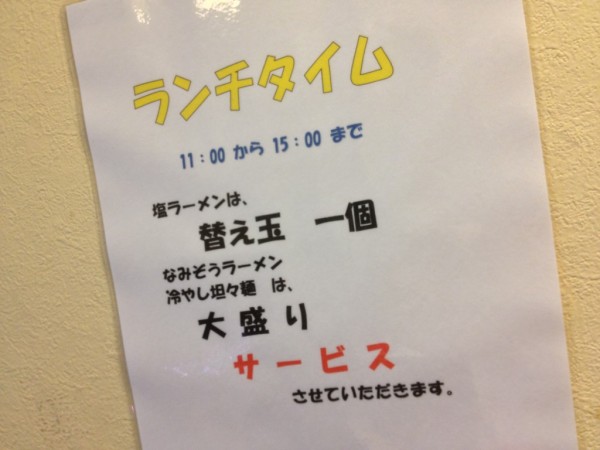 ランチタイム
11：00 から 15：00 まで
塩ラーメンは、
替え玉　一個
なみぞうラーメン
冷やし坦々麺　は、
大盛り
サービス
させていただきます。